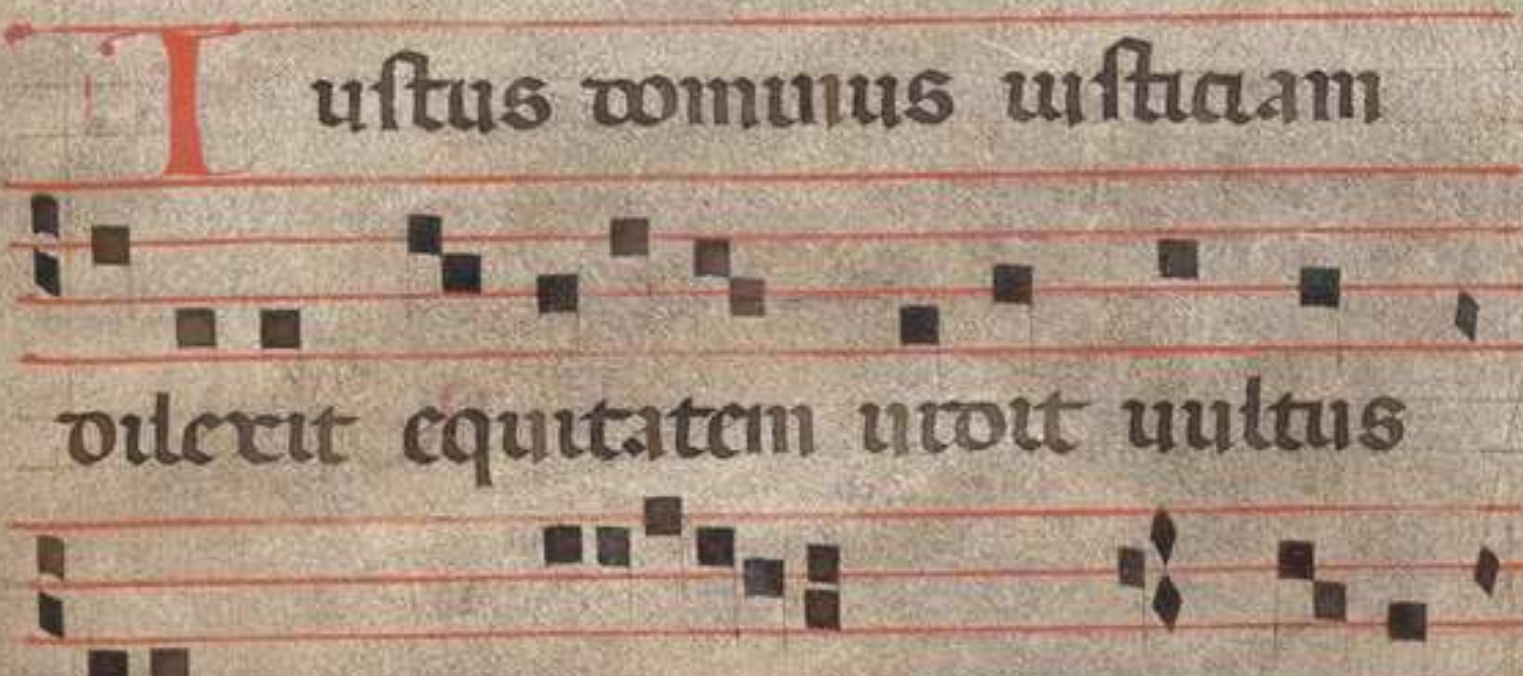 Iustus dominus iusticiam
dilexit equitatem uidit uultus